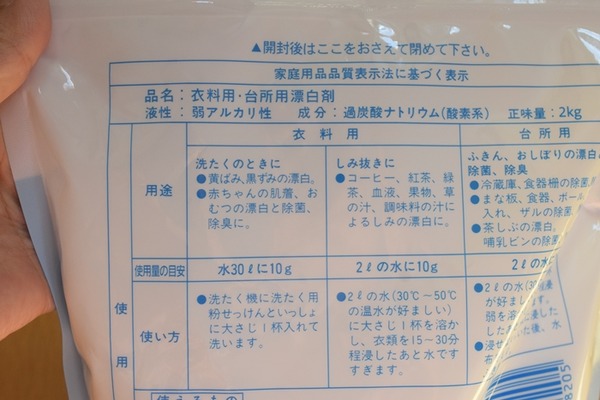 ▲開封後はここをおさえて閉めて下さい。
家庭用品品質表示法に基づく表示
品名：衣料用・台所用漂白剤
液性：弱アルカリ性 成分：過炭酸ナトリウム(酸素系) 正味量：2kg
衣料用 台所用
用途
洗たくのときに
●黄ばみ、黒ずみの漂白。
●赤ちゃんの肌着、お
むつの漂白と除菌、
除臭に。
しみ抜きに
●コーヒー、紅茶、緑
茶、血液、果物、草
の汁、調味料の汁に
よるしみの漂白に。
ふきん、おしぼりの漂白
除菌、除臭
●冷蔵庫、食器棚の除菌
●まな板、食器、ボール
入れ、ザルの除菌
●茶しぶの漂白。
哺乳ビンの除菌
使用量の目安 水30ℓに10g 2ℓの水に10g 2ℓの水
使用
使い方
●洗たく機に洗たく用
粉せっけんといっしょ
に大さじ1杯入れて
洗います。
●2ℓの水(30℃～50℃
の温水が好ましい)
に大さじ1杯を溶か
し、衣類を15～30分
程浸したあと水です
すぎます。
●2ℓの水
が好まし
使えるもの
8205